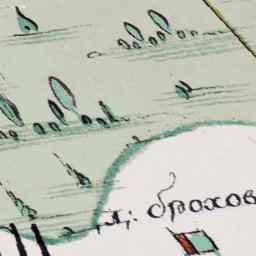 Д: брохов